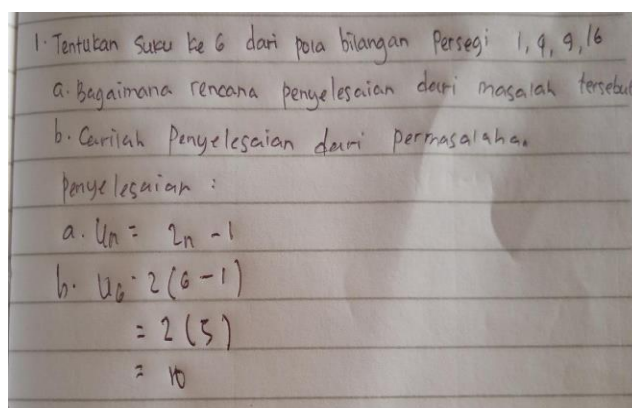 1. Tentukan Suku ke 6 dari pola bilangan Persegi 1, 4, 9, 16
a. Bagaimana rencana penyelesaian dari masalah tersebut
b. Carilah Penyelesaian dari permasalahan
Penyelesaian :
a. Un = 2n - 1
b. U6 = 2 (6 - 1)
= 2 (5)
= 10